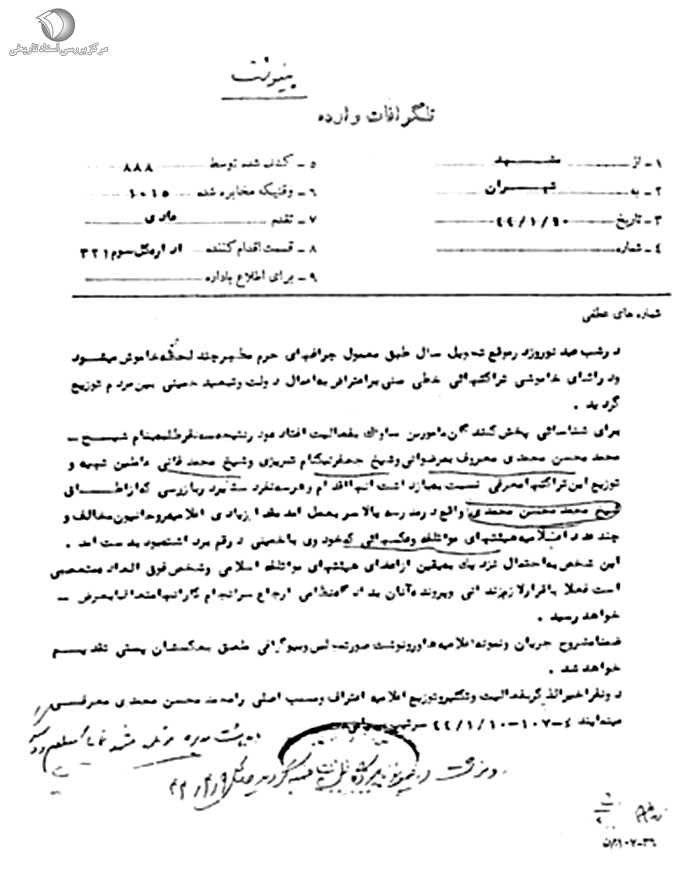 مرکز بررسی اسناد تاریخی
پیوست
تلگرافات وارده
۱ - از مشهد
۲ - به تهران
۳ - تاریخ ۴۴/۱/۱۰
۴ - شماره
۵ - کشف شده توسط ۸۸۸
۶ - وقتیکه مخابره شده ۱۰۱۵
۷ - تقدم عادی
۸ - قسمت اقدام کننده اداره کل سوم ۳۲۱
۹ - برای اطلاع باداره
شماره های عطفی
در شب عید نوروز در موقع تحویل سال طبق معمول چراغهای حرم مطهر چند لحظه خاموش میشود
ودر اثنای خاموشی تراکتهائی خطی مبنی بر اعتراض به اعمال دولت و تبعید خمینی بین مردم توزیع
گردید .
برای شناسائی پخش کنندگان مامورین ساواک بفعالیت افتاده ودر نتیجه سه نفر طلبه بنام شیخ -
محمد محسن محمدی معروف به رضوانی وشیخ جعفر شریزی وشیخ محمد فانی عاملین تهیه و
توزیع این تراکتها معرفی نسبت به بازداشت آنها اقدام وهر سه نفر دستگیر در بازرسی که از اطاق
شیخ محمد محسن محمدی واقع در مدرسه بالاسر بعمل آمد مقدار زیادی اعلامیه روحانیون مخالف و
چند عدد اعلامیه هیئتهای موتلفه وعکسهائی که خود وی با خمینی در قم برداشته بود بدست آمد .
این شخص به احتمال نزدیک به یقین از اعضای هیئتهای موتلفه اسلامی وشخص فوق العاده متعصبی
است فعلا با قرار لازم زندانی وپرونده آنان به دادگاه نظامی ارجاع سرانجام کار آنها متعاقبا بعرض -
خواهد رسید .
ضمنا مشروح جریان ونمونه اعلامیه ها ورونوشت صورتجلس وبیوگرافی ملصق به عکسشان پستی تقدیم
خواهد شد .
دونفر اخیرالذکر بفعالیت وتکثیر وتوزیع اعلامیه اعتراف ومسبب اصلی را محمد محسن محمدی معرفی
مینمایند ۴-۱۰۷-۴۴/۱/۱۰ سرتیپ
۳۶-۱۰۷